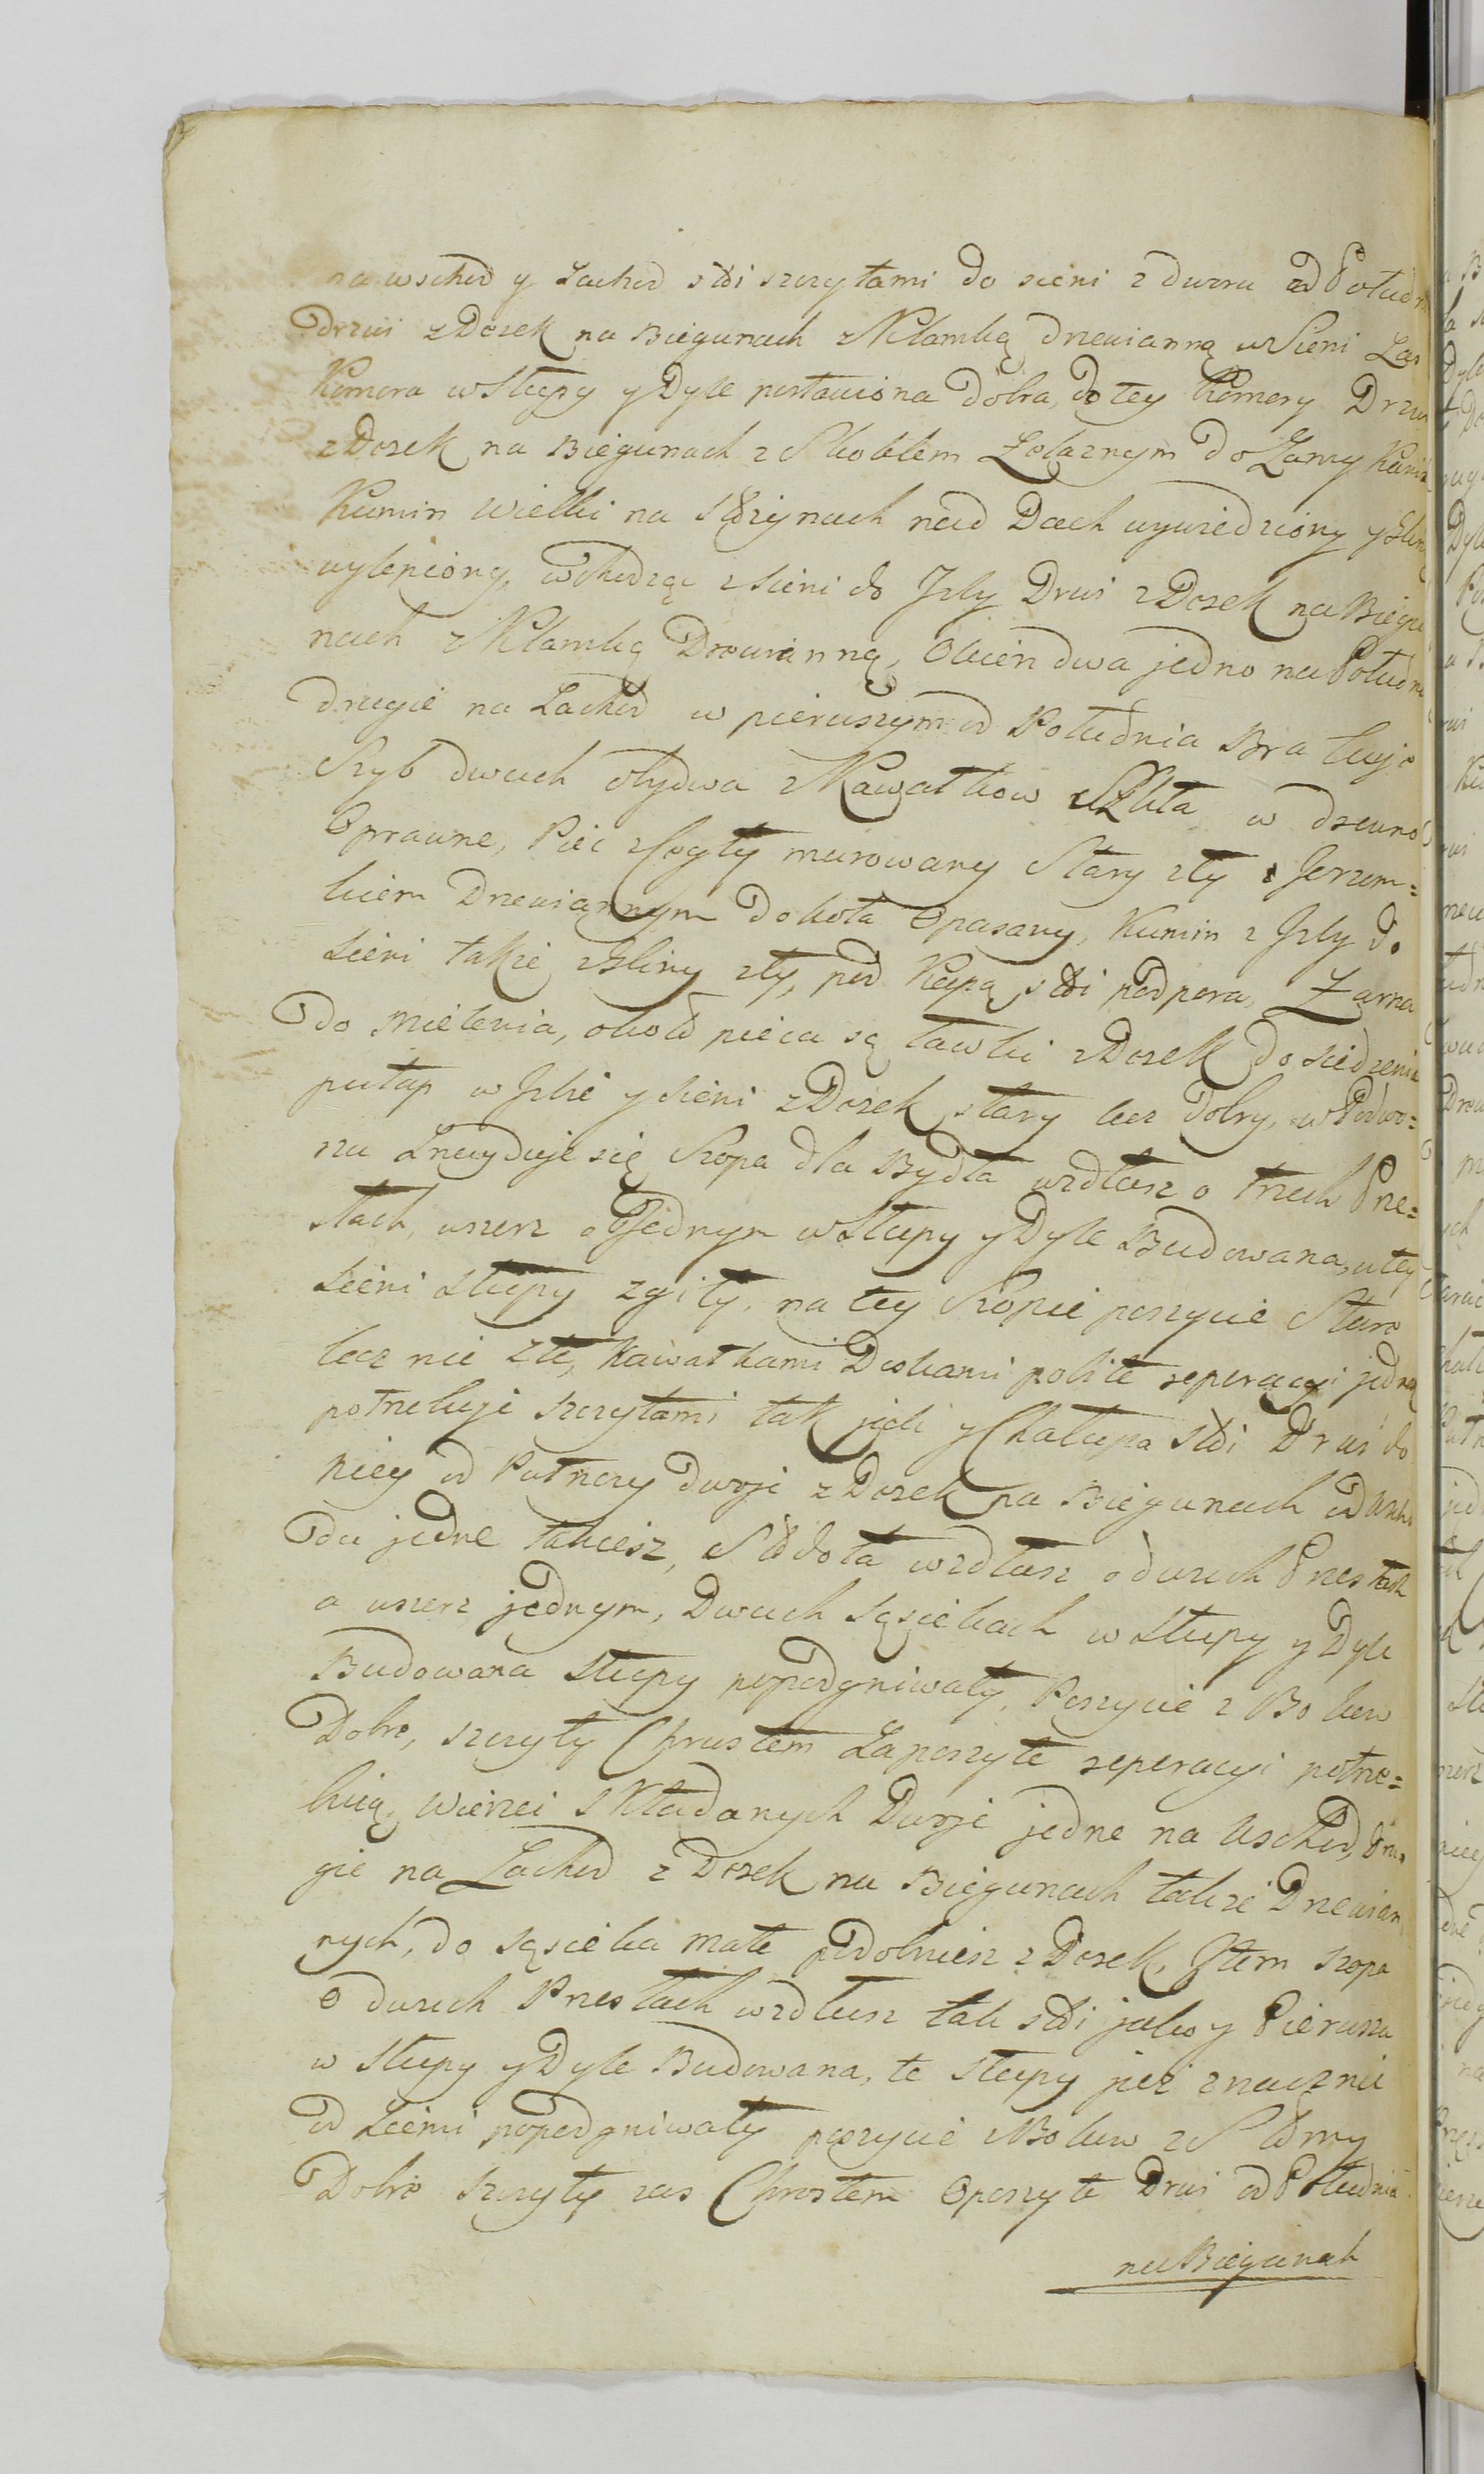 na wschod y Zachod stoi szczytami do sieni z dworu od Południ
Drzwi z Dosek na Biegunach z Klamką drzewianną w Sieni Zas
Komora w Słupy y Dyle postawiona Dobra, do tey Komory Drzwi
z Dosek na Biegunach z Skoblem Żelaznym do Zamy kania
Kumin wielki na Strżynach nad Dach wywiedziony y Gliną
wylepiony, wchodząc z sieni do Jzby Drwi z Dosek na Biegu
nach z Klamką Drewianną, Okien dwa jedno na Południe
drugie na Zachod w pierwszym od Południa Bra kuje
Szyb dwuch obydwa z Kawałkow Szkła w drzewo
Oprawne, Piec z Cegły murowany Stary zły z Gerzem=
kiem Drzewiannym Dokoła Opasany, Kumin z Jzby do
Sieni takze z Gliny zły, pod Kapą stoi podpora, Żarna
do mielenia, około pieca są ławki z Dosek do siedzenia
pułap w Jzbie y sieni z Dosek stary lecz dobry, w Podwo=
rzu Znayduje się Szopa dla Bydła wzdłusz o trzech Prze=
słach, wszerz o Jednym w Słupy y Dyle Budowana, u tey
Sieni słupy zgiły, na tey Szopie poszycie Stare
lecz nie złe, Kawałkami Deskami pobite reperacyi jedną
potrzebuje szczytami tak jeki y Chałupa stoi Drwi do
niey od Pułnocy dwoje z Dosek na Biegunach od wscho
du jedne takiesz, Stodoła wzdłusz o dwuch Przesłach
a wszerz jednym, Dwuch Sąsiekach w słupy y Dyle
Budowana słupy popodgniwały, Poszycie z Bokow
Dobre, szczyty Chrustem Zaposzyte reperacyi potrze=
buią, Wierzei Składanych Dwoje jedne na Wschod, dru=
gie na Zachod z Dosek na Biegunach także Drzewian
nych, do sąsieka małe podolniesz z Dosek, Jtem szopa
o dwuch Przesłach wzdłusz tak stoi jako y Pierwsza
w Słupy y Dyle Budowana, te słupy jusz znacznie
od Ziemi popodgniwały poszycie z Bokow z Słomy
Dobre szczyty zas Chrostem Oposzyte Drwi od Południa
na Biegunach